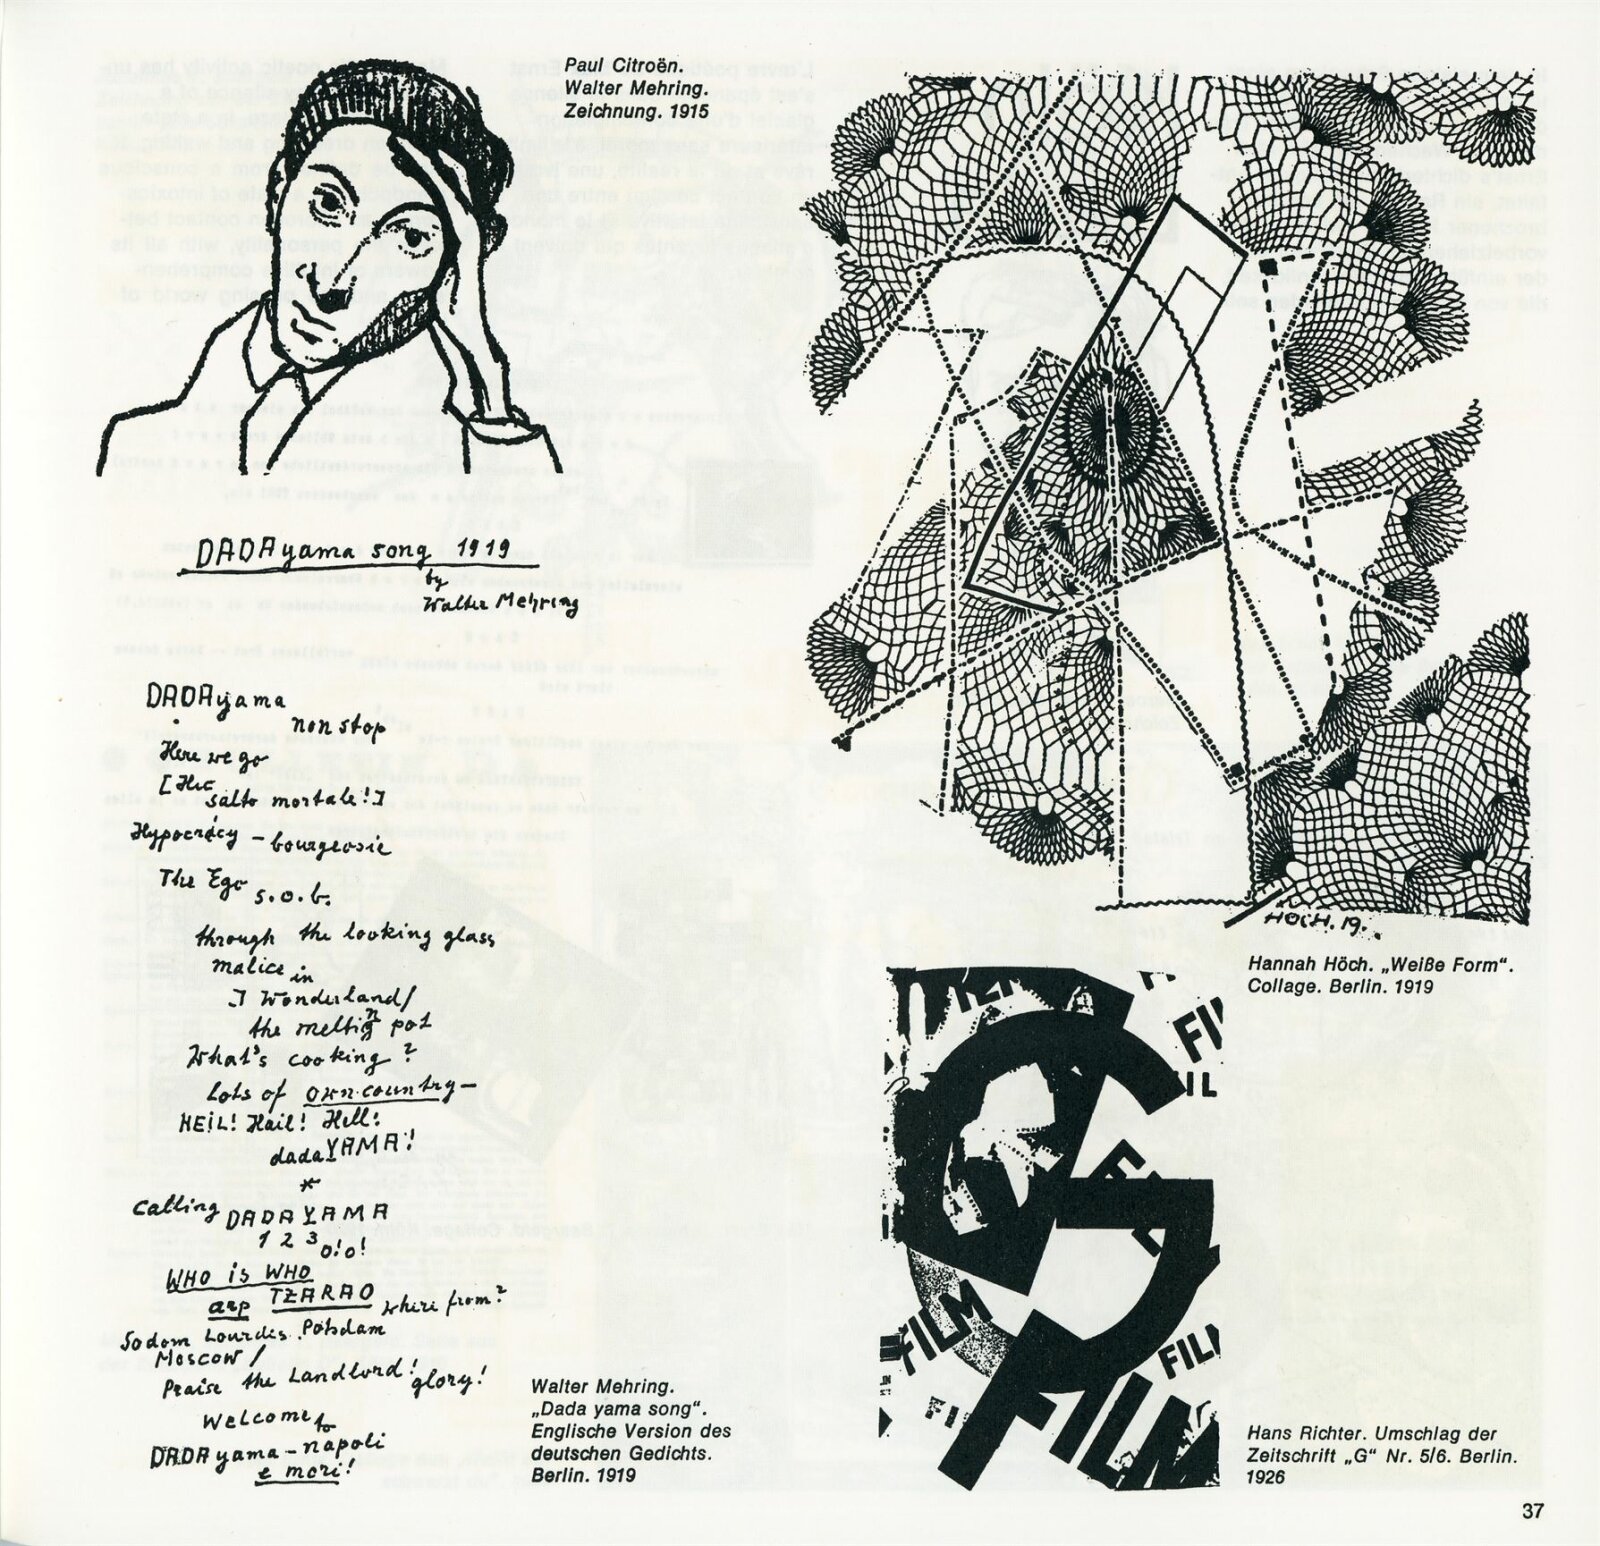 Paul Citroën.
Walter Mehring.
Zeichnung. 1915
DADAyama song 1919
by
Walter Mehring
DADAyama
non stop
Here we go
[Hic
salto mortale!]
Hypocrácy – bourgeoisie
The Ego
s.o.b.
through the looking glass
malice in
] Wonderland/
the meltig pot
n
What's cooking?
Lots of own-country –
HEIL! Hail! Hell!
dadaYAMA!
*
Calling DADAYAMA
1 2 3 o! o!
WHO iS WHO
arp TZARAO where from?
Sodom Lourdes. Potsdam
Moscow /
Praise the Landlord! glory!
Welcome to
DADAyama – napoli
e mori!
Walter Mehring.
„Dada yama song“.
Englische Version des
deutschen Gedichts.
Berlin. 1919
HÖCH. 19.
Hannah Höch. „Weiße Form“.
Collage. Berlin. 1919
FILM
G
FILM
FILM
Hans Richter. Umschlag der
Zeitschrift „G“ Nr. 5/6. Berlin.
1926
37